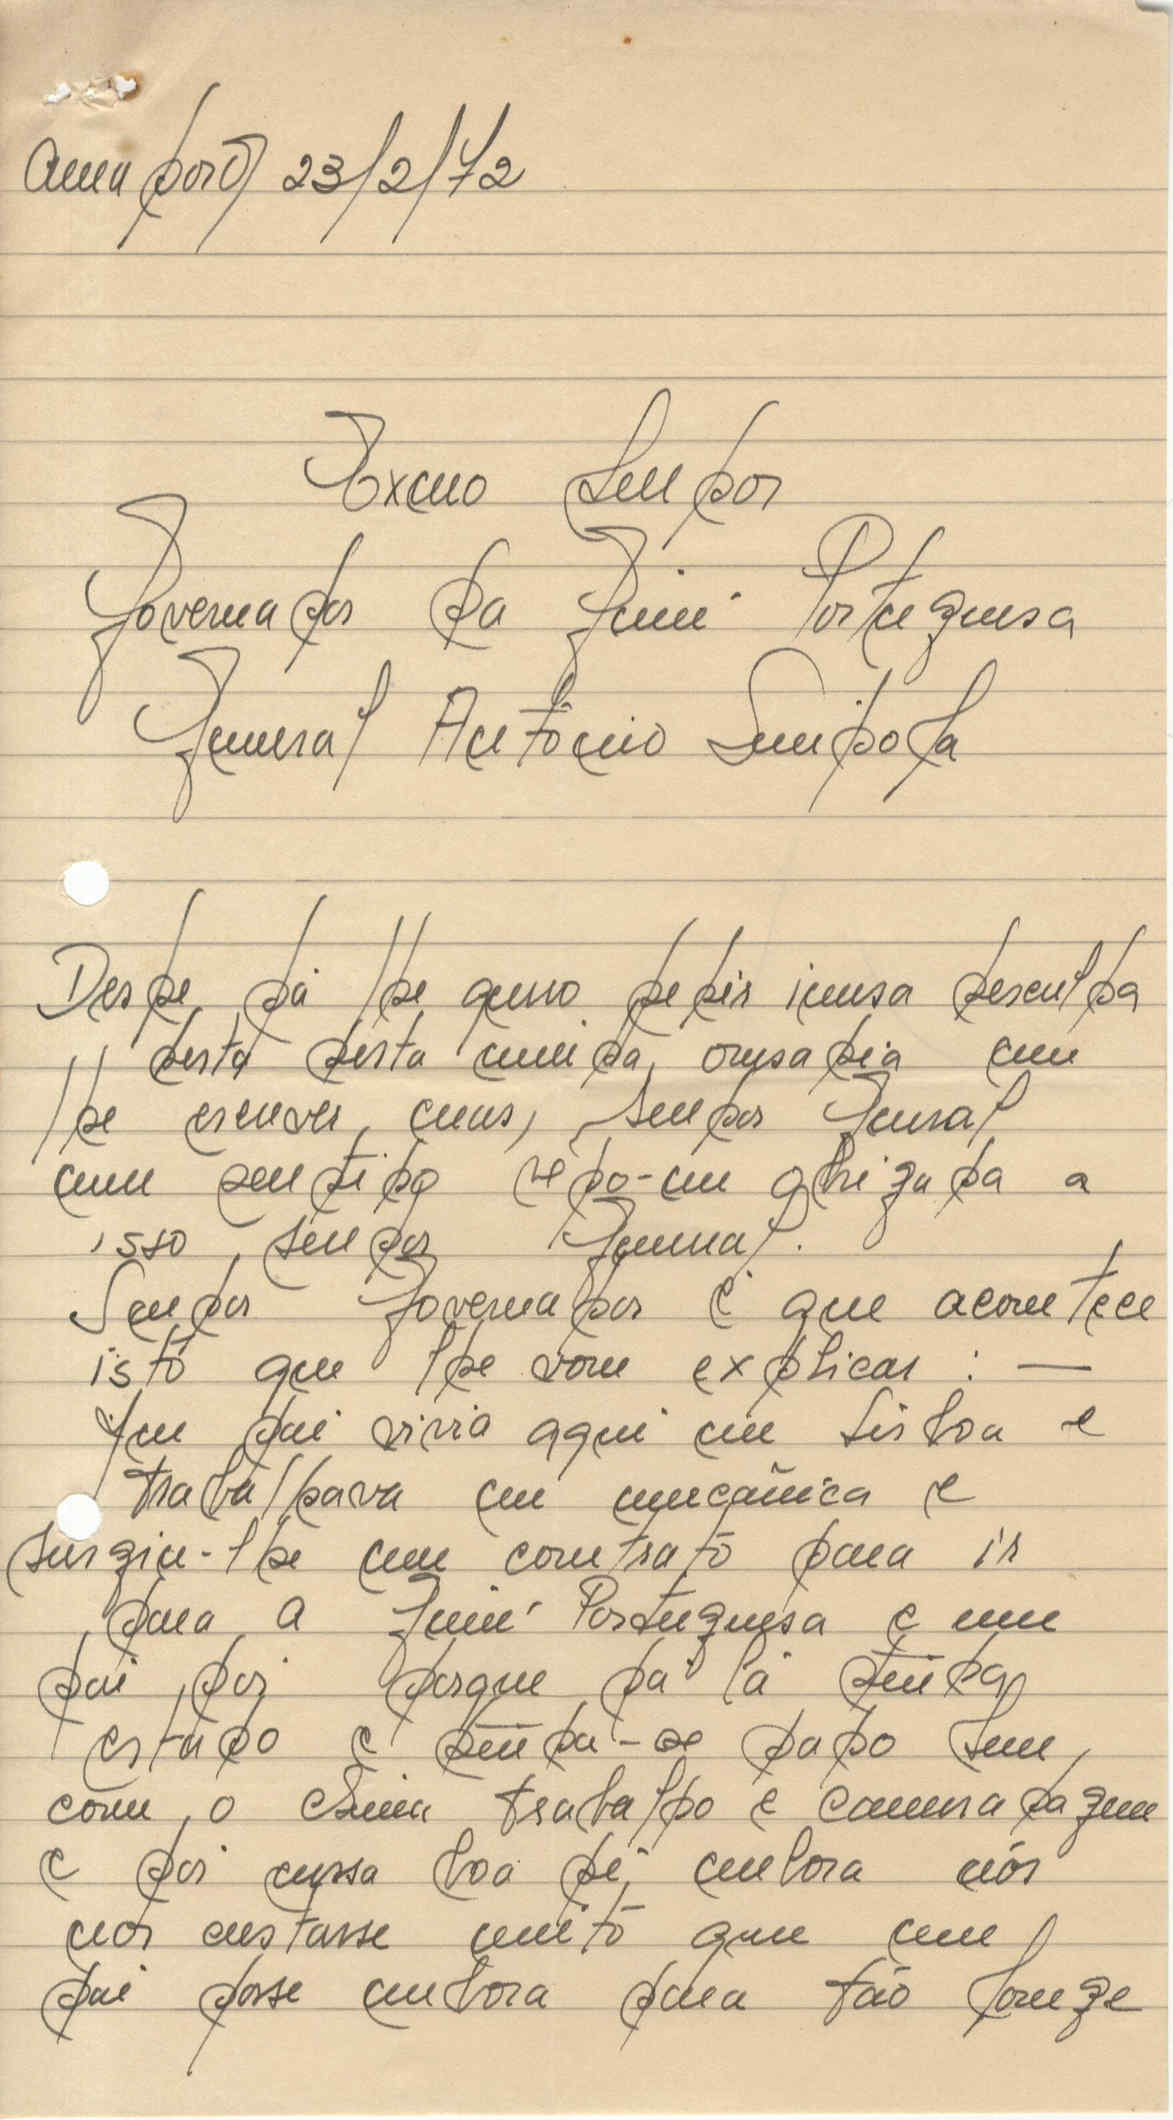 Amadora 23/2/72
Exmo Senhor
Governador da Guiné Portuguesa
General António Spinola
Desde já lhe quero pedir imensa desculpa
desta minha ousadia em
lhe escrever, mas, Senhor General
um sentido vejo-me obrigada a
isso, Senhor General.
Senhor Governador é que acontece
isto que lhe vou explicar : —
Meu pai vivia aqui em Lisboa e
trabalhava em mecânica e
surgiu-lhe um contrato para ir
para a Guiné Portuguesa e meu
pai foi porque já lá tinha
estado e tinha-se dado bem,
com o clima trabalho e camaradagem
e foi nessa boa fé, embora nós
nos custasse muito que meu
pai fosse embora para tão longe